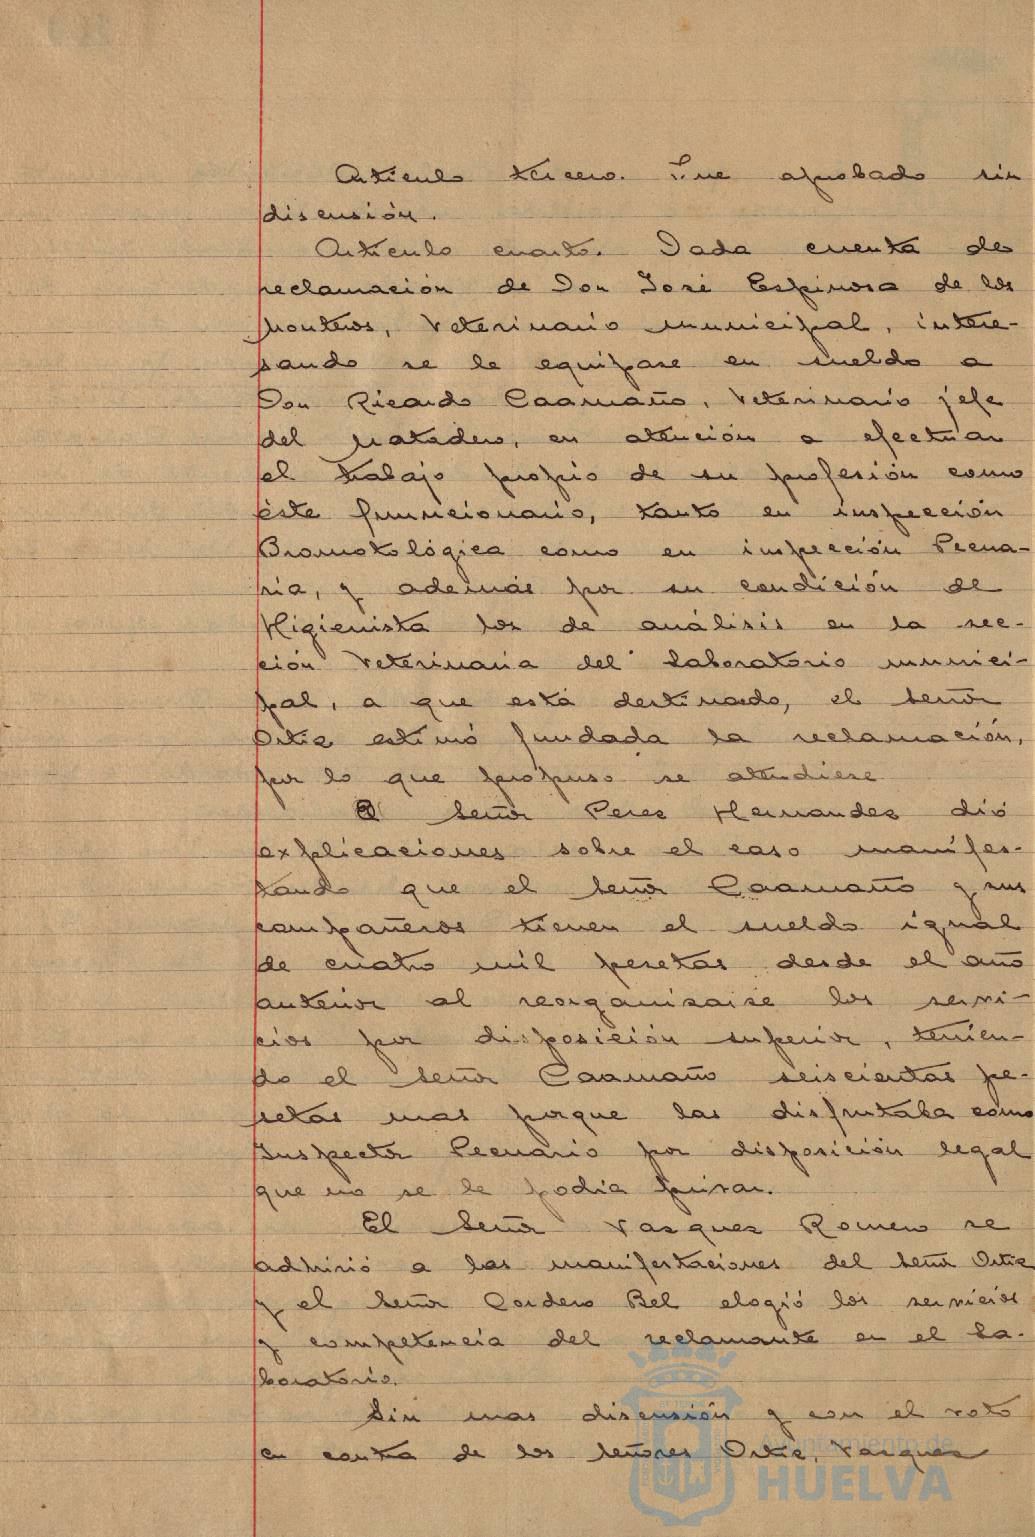 Artículo tercero. Fue aprobado sin
discusión.
Artículo cuarto. Dada cuenta de
reclamación de Don José Espinosa de los
Monteros, Veterinario municipal, intere-
sando se le equipare en sueldo a
Don Ricardo Caamaño, Veterinario jefe
del Matadero, en atención a efectuar
el trabajo propio de su profesión como
éste funcionario, tanto en inspección
Bromotológica como en inspección Pecua-
ria, y además por su condición de
Higienista los de análisis en la sec-
ción Veterinaria del laboratorio munici-
pal, a que está destinado, el Señor
Ortiz estimó fundada la reclamación,
por lo que propuso se atendiese
El Señor Perez Hernandez dió
explicaciones sobre el caso manifes-
tando que el Señor Caamaño y sus
compañeros tienen el sueldo igual
de cuatro mil pesetas desde el año
anterior al reorganizarse los servi-
cios por disposición superior, tenien-
do el Señor Caamaño seiscientas pe-
setas mas porque las disfrutaba como
Inspector Pecuario por disposición legal
que no se le podía privar.
El Señor Vazquez Romero se
adhirió a las manifestaciones del Señor Ortiz
y el Señor Cordero Bel elogió los servicios
y competencia del reclamante en el La-
boratorio.
Sin mas discusión y con el voto
en contra de los Señores Ortiz, Vazquez
Ayuntamiento de
HUELVA